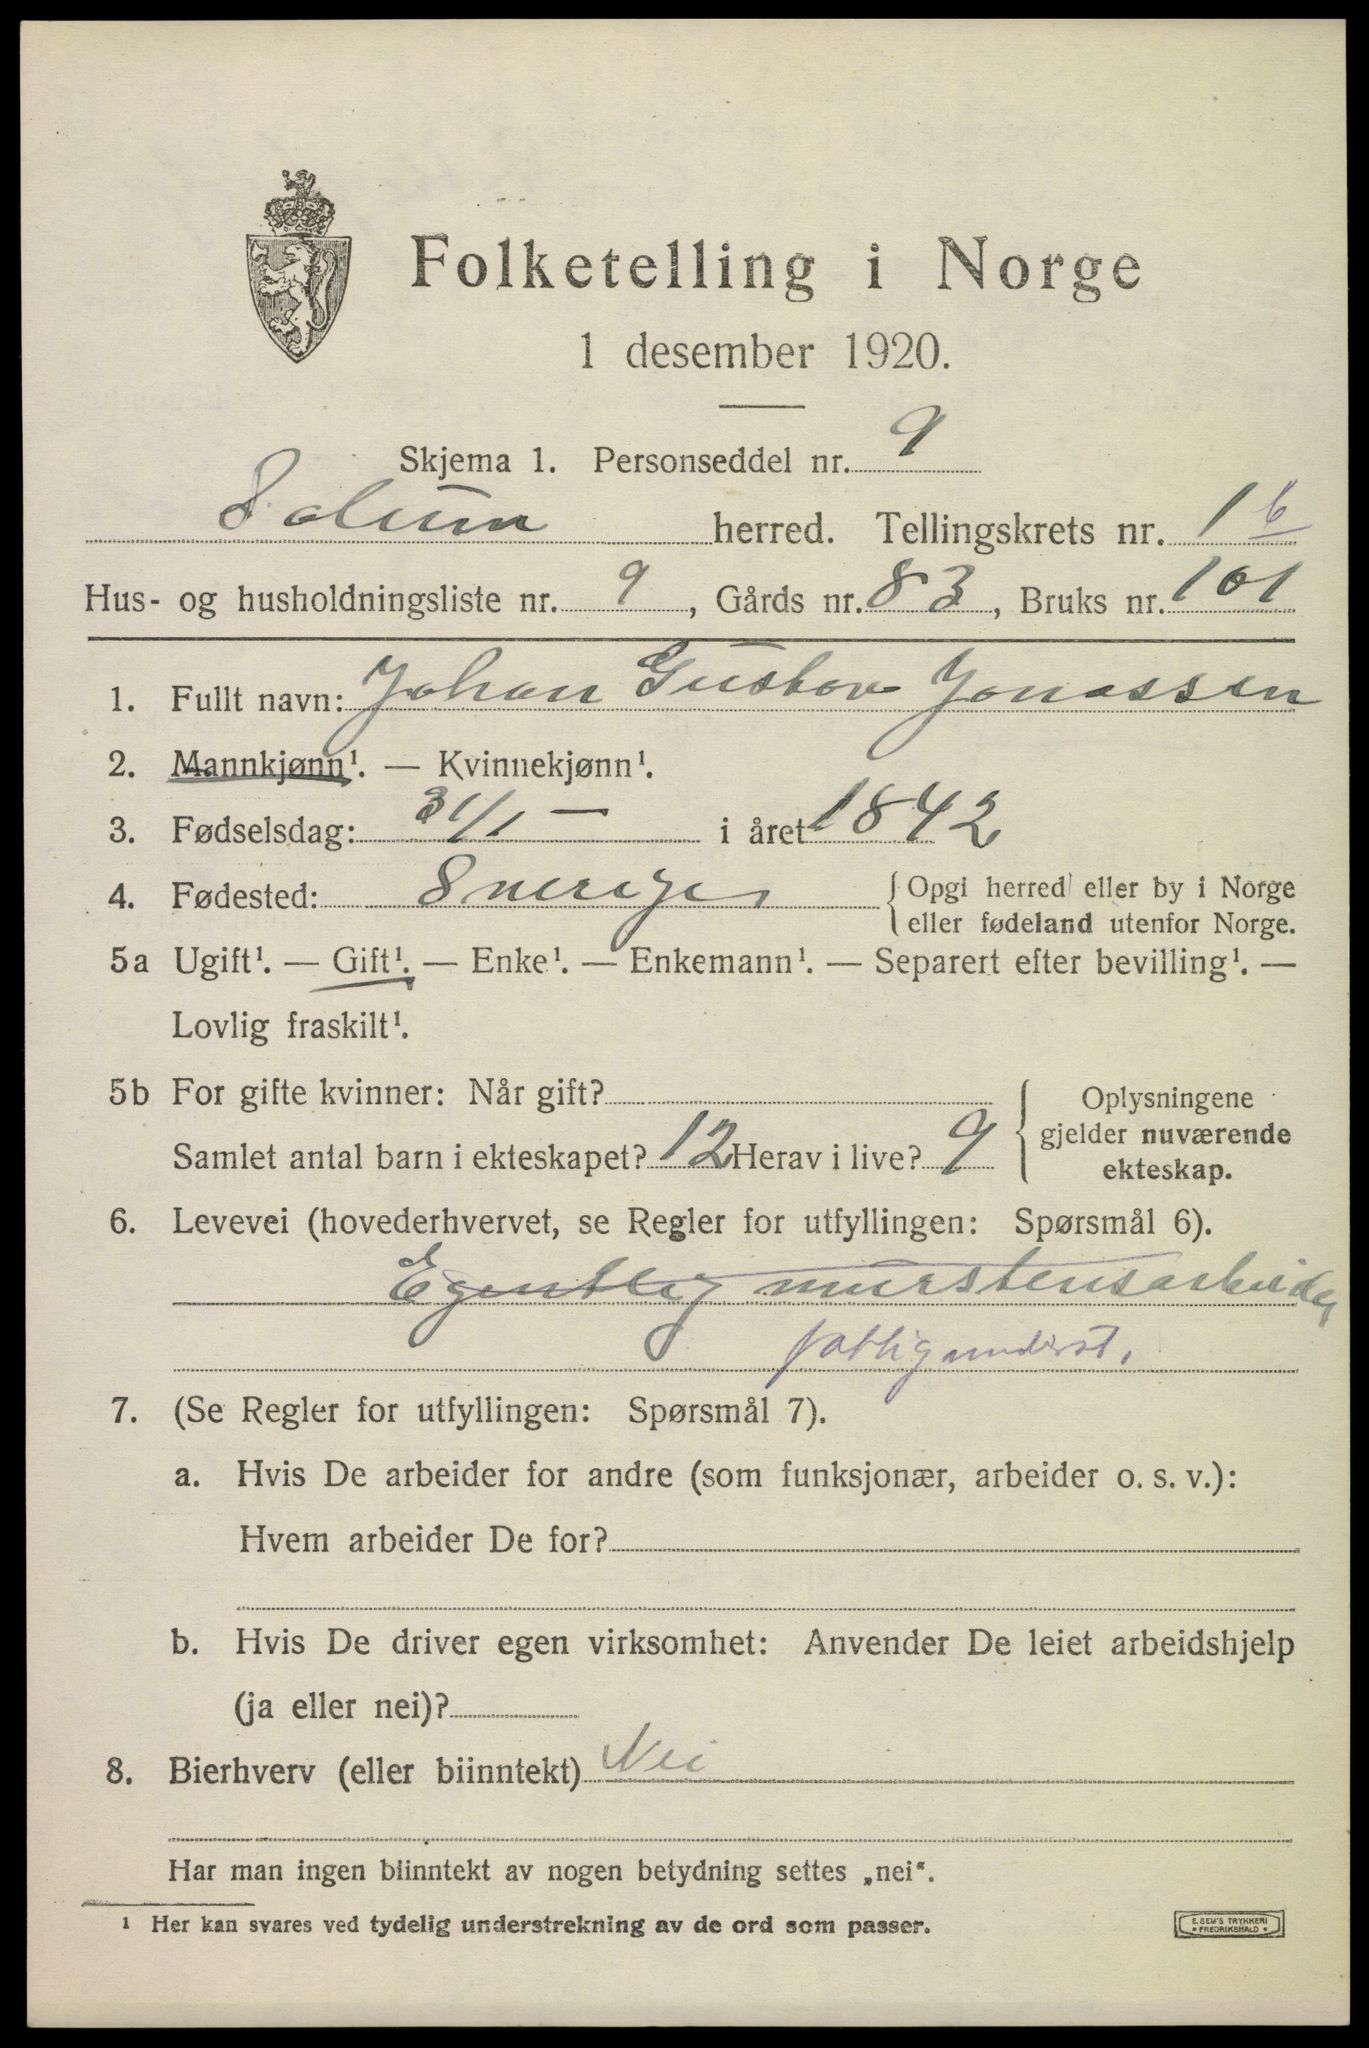 Folketelling i Norge
1 desember 1920.
Skjema 1. Personseddel nr. 9
Solum herred. Tellingskrets nr. 1 b
Hus- og husholdningsliste nr. 9, Gårds nr. 83, Bruks nr. 101
1. Fullt navn: Johan Gustav Jonassen
2. Mannkjønn¹. — Kvinnekjønn¹.
3. Fødselsdag: 31/1 — i året 1842
4. Fødested: Sverige {Opgi herred eller by i Norge
eller fødeland utenfor Norge.
5a Ugift¹. — Gift¹. — Enke¹. — Enkemann¹. — Separert efter bevilling¹. —
Lovlig fraskilt¹.
5b For gifte kvinner: Når gift?
Samlet antal barn i ekteskapet? 12 Herav i live? 9
{Oplysningene
gjelder nuværende
ekteskap.
6. Levevei (hovederhvervet, se Regler for utfyllingen: Spørsmål 6).
Egentlig murstensarbeider
fattigunderst.
7. (Se Regler for utfyllingen: Spørsmål 7).
a. Hvis De arbeider for andre (som funksjonær, arbeider o. s. v.):
Hvem arbeider De for?
b. Hvis De driver egen virksomhet: Anvender De leiet arbeidshjelp
(ja eller nei)?
8. Bierhverv (eller biinntekt) Nei
Har man ingen biinntekt av nogen betydning settes „nei“.
¹ Her kan svares ved tydelig understrekning av de ord som passer.
E. SEM'S TRYKKERI
• FREDRIKSHALD •